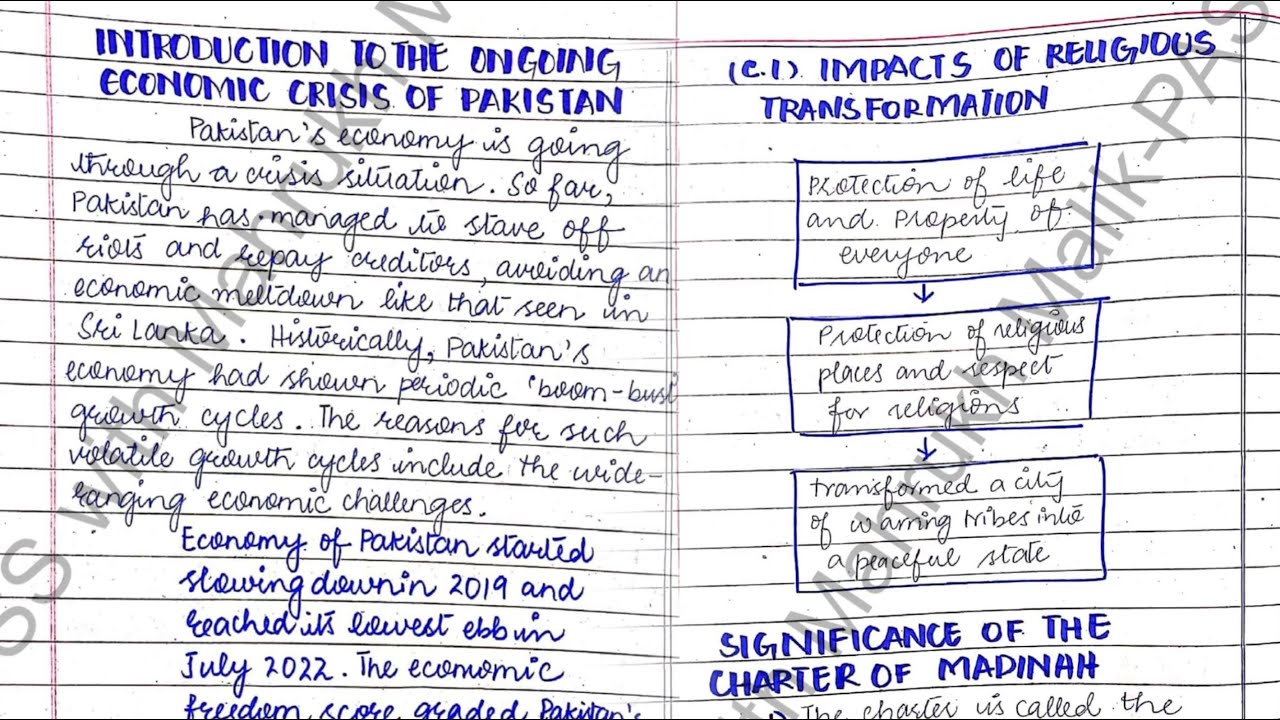 INTRODUCTION TO THE ONGOING
ECONOMIC CRISIS OF PAKISTAN
Pakistan's economy is going
through a crisis situation. So far,
Pakistan has managed to stave off
riots and repay creditors, avoiding an
economic meltdown like that seen in
Sri Lanka. Historically, Pakistan's
economy had shown periodic 'boom-bust
growth cycles. The reasons for such
volatile growth cycles include the wide-
ranging economic challenges.
Economy of Pakistan started
slowing down in 2019 and
reached its lowest ebb in
July 2022. The economic
freedom score graded Pakistan's
(C.1) IMPACTS OF RELIGIOUS
TRANSFORMATION
Protection of life
and Property of
everyone
↓
Protection of religious
places and respect
for religions
↓
transformed a city
of warring tribes into
a peaceful state
SIGNIFICANCE OF THE
CHARTER OF MADINAH
The charter is called the
SS with Mahrukh M
with Mahrukh Malik-PAS